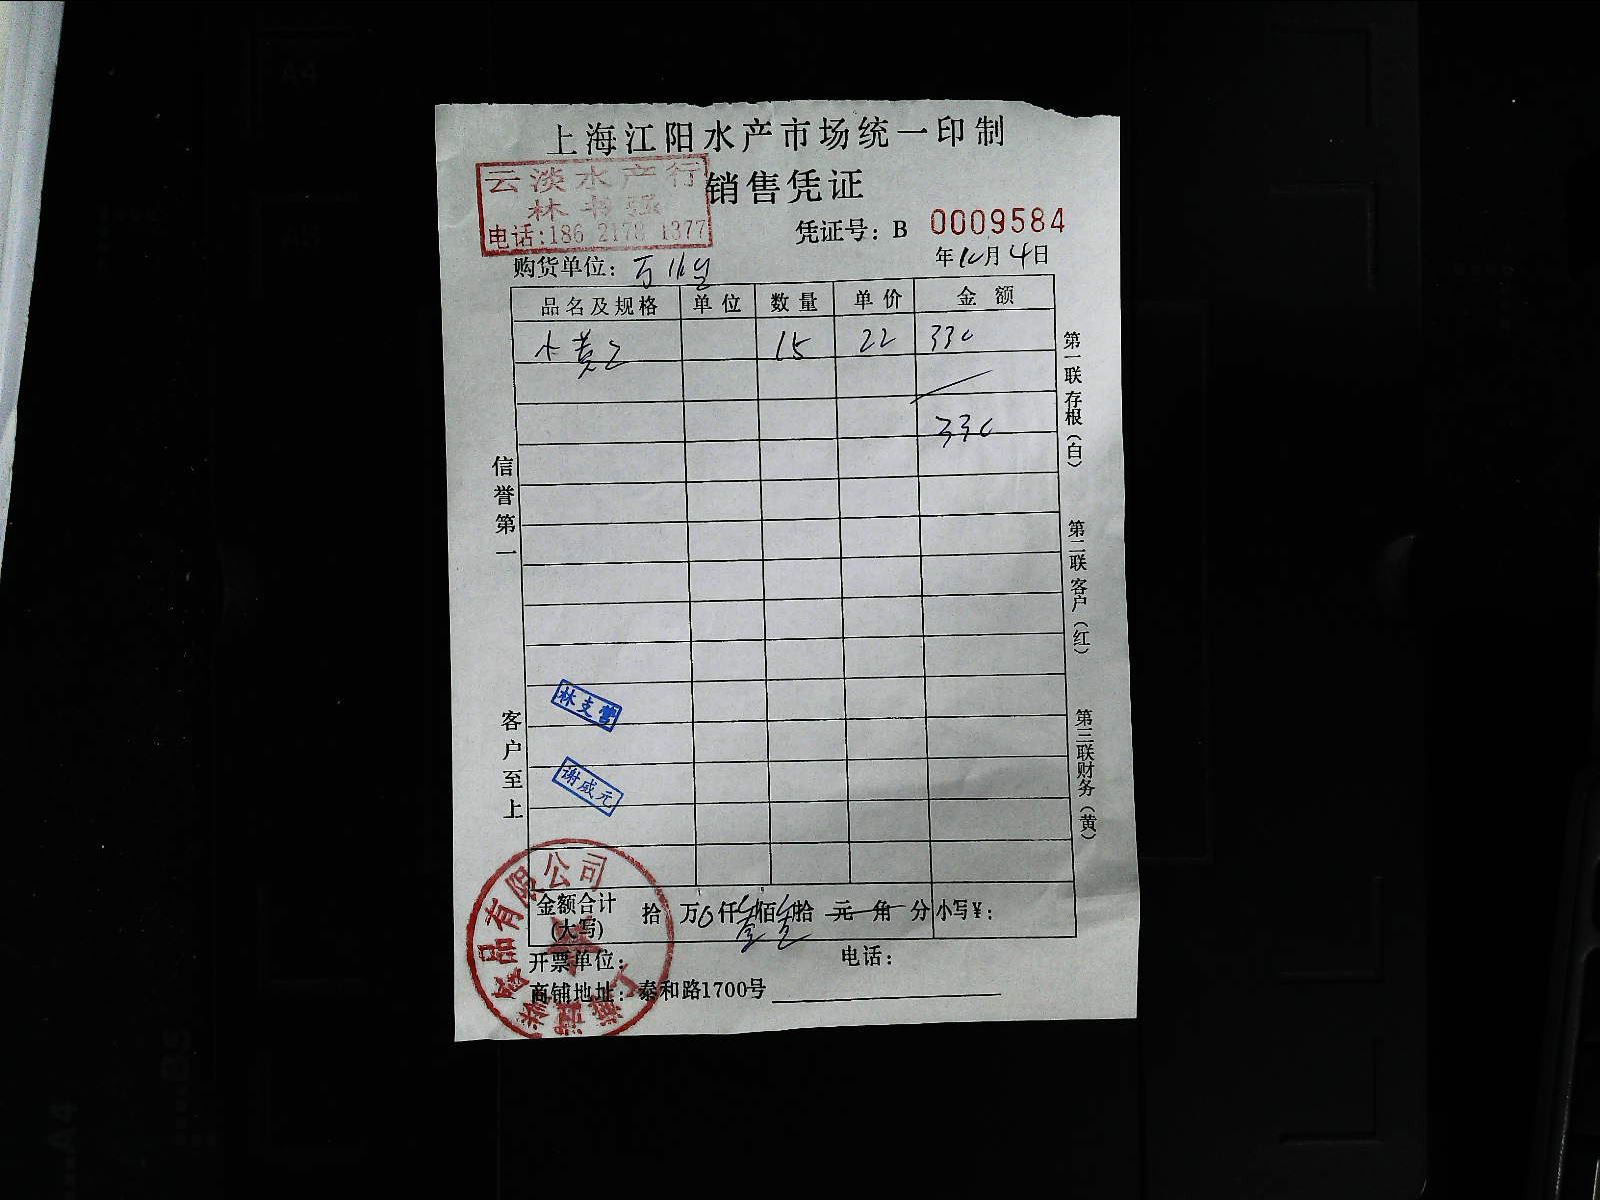 上海江阳水产市场统一印制
销售凭证
云淡水产行
林书强
电话:186 2178 1377
凭证号: B 0009584
年10月4日
购货单位:
品名及规格 单位 数量 单价 金额
小黄 15 22 330
330
信誉第一
客户至上
第一联存根(白)
第二联客户(红)
第三联财务(黄)
林支营
谢成元
品有限公司
金额合计(大写) 拾 万 仟 佰 拾 元 角 分 小写¥:
开票单位: 电话:
商铺地址: 泰和路1700号